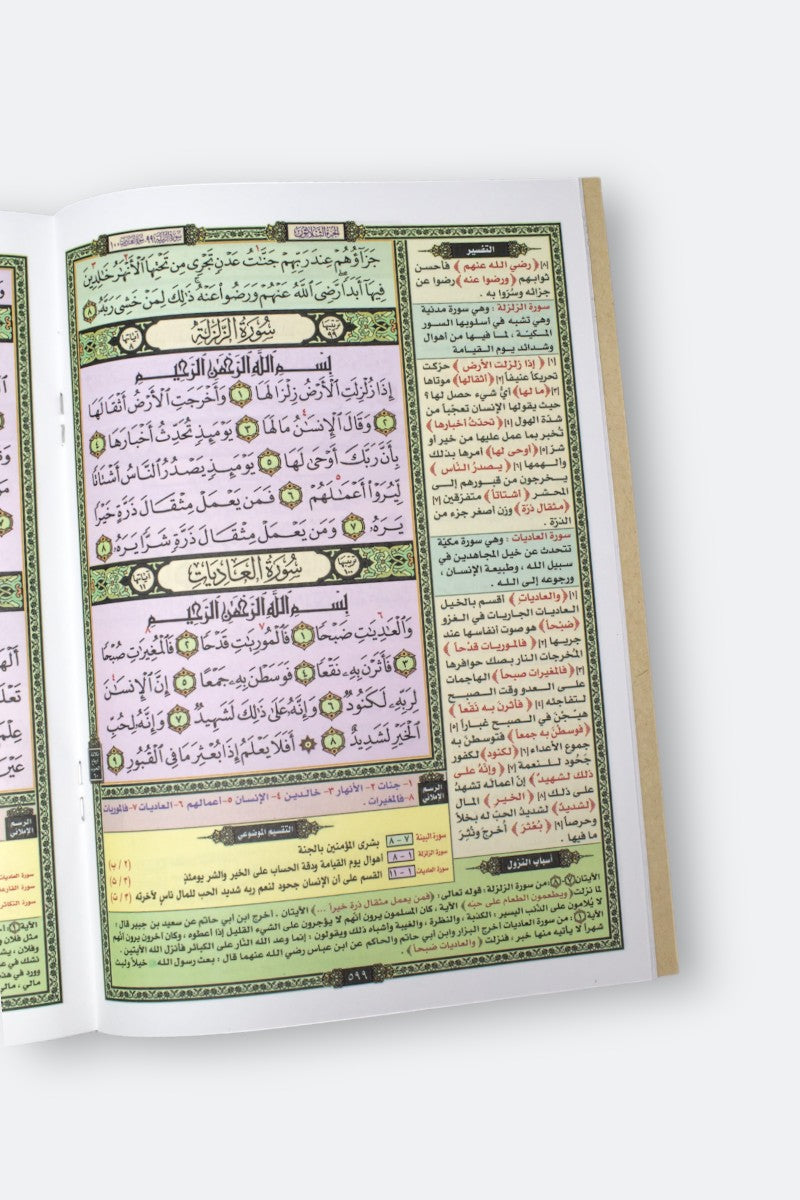 الجزء الثلاثون
جَزَآؤُهُمْ عِندَ رَبِّهِمْ جَنَّٰتُ عَدْنٍ تَجْرِى مِن تَحْتِهَا ٱلْأَنْهَٰرُ خَٰلِدِينَ
فِيهَآ أَبَدًا رَّضِىَ ٱللَّهُ عَنْهُمْ وَرَضُوا۟ عَنْهُ ذَٰلِكَ لِمَنْ خَشِىَ رَبَّهُۥ ٨
ترتيبها ٩٩ سُورَةُ الزَّلْزَلَةِ آياتها ٨
بِسْمِ ٱللَّهِ ٱلرَّحْمَٰنِ ٱلرَّحِيمِ
إِذَا زُلْزِلَتِ ٱلْأَرْضُ زِلْزَالَهَا ١ وَأَخْرَجَتِ ٱلْأَرْضُ أَثْقَالَهَا
٢ وَقَالَ ٱلْإِنسَٰنُ مَا لَهَا ٣ يَوْمَئِذٍ تُحَدِّثُ أَخْبَارَهَا ٤
بِأَنَّ رَبَّكَ أَوْحَىٰ لَهَا ٥ يَوْمَئِذٍ يَصْدُرُ ٱلنَّاسُ أَشْتَاتًا
لِّيُرَوْا۟ أَعْمَٰلَهُمْ ٦ فَمَن يَعْمَلْ مِثْقَالَ ذَرَّةٍ خَيْرًا
يَرَهُۥ ٧ وَمَن يَعْمَلْ مِثْقَالَ ذَرَّةٍ شَرًّا يَرَهُۥ ٨
ترتيبها ١٠٠ سُورَةُ الْعَادِيَاتِ آياتها ١١
بِسْمِ ٱللَّهِ ٱلرَّحْمَٰنِ ٱلرَّحِيمِ
وَٱلْعَٰدِيَٰتِ ضَبْحًا ١ فَٱلْمُورِيَٰتِ قَدْحًا ٢ فَٱلْمُغِيرَٰتِ صُبْحًا
٣ فَأَثَرْنَ بِهِۦ نَقْعًا ٤ فَوَسَطْنَ بِهِۦ جَمْعًا ٥ إِنَّ ٱلْإِنسَٰنَ
لِرَبِّهِۦ لَكَنُودٌ ٦ وَإِنَّهُۥ عَلَىٰ ذَٰلِكَ لَشَهِيدٌ ٧ وَإِنَّهُۥ لِحُبِّ
ٱلْخَيْرِ لَشَدِيدٌ ٨ ۞ أَفَلَا يَعْلَمُ إِذَا بُعْثِرَ مَا فِى ٱلْقُبُورِ ٩
التفسير
[٨] ﴿رضي الله عنهم﴾ فأحسن
ثوابهم ﴿ورضوا عنه﴾ رضوا عن
جزائه وسُرّوا به .
سورة الزلزلة : وهي سورة مدنية
وهي تشبه في أسلوبها السور
المكيّة ، لما فيها من أهوال
وشدائد يوم القيامة
[١] ﴿إذا زلزلت الأرض﴾ حرّكت
تحريكاً عنيفاً [٢] ﴿أثقالها﴾ موتاها
[٣] ﴿ما لها﴾ أيُّ شيء حصل لها ؟
حيث يقولها الإنسان تعجّباً من
شدّة الهول [٤] ﴿تحدث أخبارها﴾
تُخبر بما عمل عليها من خير أو
شرّ [٥] ﴿أوحى لها﴾ أمرها بذلك
وألهمها [٦] ﴿يصدرُ الناس﴾
يخرجون من قبورهم إلى
المحشر ﴿أشتاتاً﴾ متفرّقين [٧]
﴿مثقال ذرّة﴾ وزن أصغر جزء من
الذرّة .
سورة العاديات : وهي سورة مكيّة
تتحدث عن خيل المجاهدين في
سبيل الله ، وطبيعة الإنسان ،
ورجوعه إلى الله .
[١] ﴿والعاديات﴾ أقسم بالخيل
العاديات الجاريات في الغزو
﴿ضبحاً﴾ هو صوت أنفاسها عند
جريها [٢] ﴿فالموريات قدحاً﴾
المُخرجات النار بصك حوافرها
[٣] ﴿فالمغيرات صبحاً﴾ الهاجمات
على العدو وقت الصبح
لتفاجئه [٤] ﴿فأثرن به نقعاً﴾
هيّجن في الصبح غباراً [٥]
﴿فوسطن به جمعاً﴾ فتوسطن به
جموع الأعداء [٦] ﴿لكنود﴾ لكفور
جَحُود للنعمة [٧] ﴿وإنّهُ على
ذلك لشهيدٌ﴾ إنّ أعماله تشهدُ
على ذلك [٨] ﴿الخير﴾ المال
﴿لشديدٌ﴾ لشديدُ الحبّ له بخلاً
وحرصاً [٩] ﴿بُعثر﴾ أُخرج ونُثِرَ
ما فيها .
الرسم الإملائي
١- جنات ٢- الأنهار ٣- خالدين ٤- الإنسان ٥- أعمالهم ٦- العاديات ٧- فالموريات
٨- فالمغيرات .
التقسيم الموضوعي
سورة البينة ٧ - ٨ بشرى المؤمنين بالجنة
سورة الزلزلة ١ - ٨ أهوال يوم القيامة ودقة الحساب على الخير والشر يومئذٍ
سورة العاديات ١ - ١١ القسم على أن الإنسان جحود لنعم ربه شديد الحب للمال ناسٍ لآخرته
أسباب النزول
الآيتان ٧-٨ : من سورة الزلزلة: قوله تعالى: ﴿فمن يعمل مثقال ذرة خيراً ...﴾ الآيتان . أخرج ابن أبي حاتم عن سعيد بن جبير قال :
لما نزلت ﴿ويطعمون الطعام على حبه﴾ الآية ، كان المسلمون يرون أنهم لا يؤجرون على الشيء القليل إذا أعطوه ، وكان آخرون يرون أنهم
لا يُلامون على الذنب اليسير : الكذبة ، والنظرة ، والغيبة وأشباه ذلك ويقولون : إنما وعد الله النار على الكبائر فأنزل الله الآيتين .
الآية ١ : من سورة العاديات أخرج البزار وابن أبي حاتم والحاكم عن ابن عباس رضي الله عنهما قال : بعث رسول الله ﷺ خيلاً ولبث
شهراً لا يأتيه منها خبر ، فنزلت ﴿والعاديات ضبحاً﴾ .
٥٩٩
الرسم الإملائي